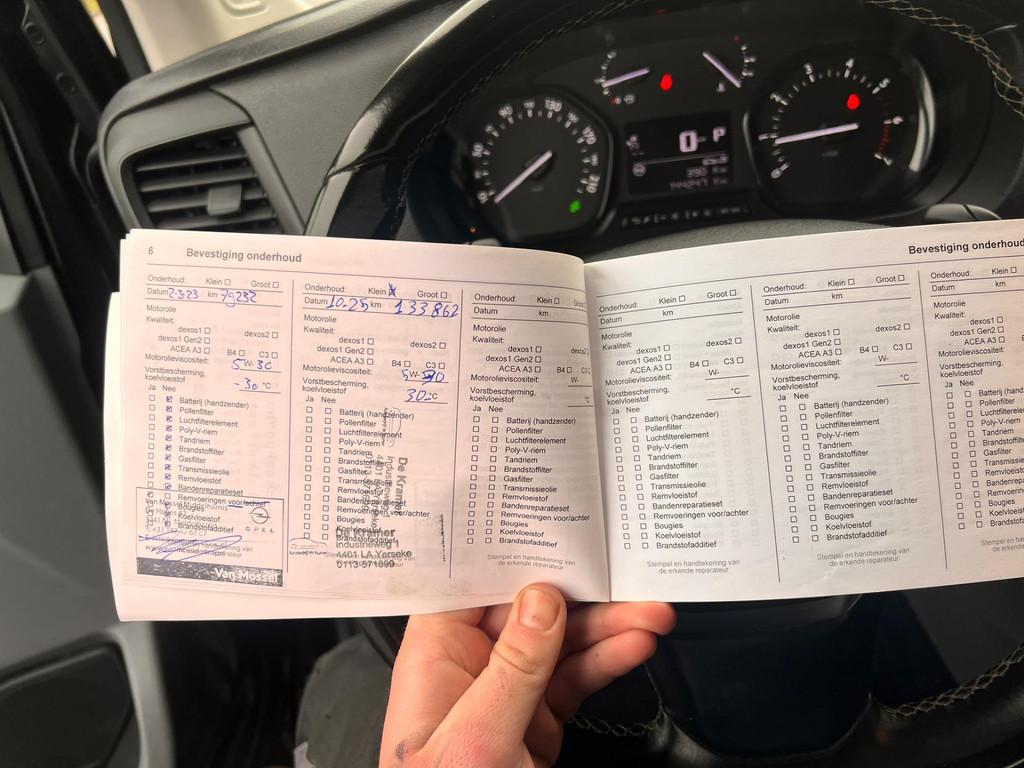 90
130
170
210
0- P
390 Km
144247 Km
0
1
3
4
5
6
7
6 Bevestiging onderhoud
Onderhoud: Klein ☐ Groot ☐
Datum 2-3-23 km 79232
Motorolie
Kwaliteit:
dexos1 ☐ dexos2 ☐
dexos1 Gen2 ☐
ACEA A3 ☐ B4 ☐ C3 ☐
Motorolieviscositeit: 5W-30
Vorstbescherming,
koelvloeistof -30 °C
Ja Nee
Batterij (handzender)
Pollenfilter
Luchtfilterelement
Poly-V-riem
Tandriem
Brandstoffilter
Gasfilter
Transmissieolie
Remvloeistof
Bandenreparatieset
Remvoeringen voor/achter
Bougies
Koelvloeistof
Brandstofadditief
OPEL
Van Mossel
Onderhoud: Klein ☒ Groot ☐
Datum 10-25 km 133862
Motorolie
Kwaliteit:
dexos1 ☐ dexos2 ☐
dexos1 Gen2 ☐
ACEA A3 ☐ B4 ☐ C3 ☐
Motorolieviscositeit: 5W-30
Vorstbescherming,
koelvloeistof 30 °C
Ja Nee
Batterij (handzender)
Pollenfilter
Luchtfilterelement
Poly-V-riem
Tandriem
Brandstoffilter
Gasfilter
Transmissieolie
Remvloeistof
Bandenreparatieset
Remvoeringen voor/achter
Bougies
Koelvloeistof
Brandstofadditief
De Kramer
Industrieweg 1
4401 LA Yerseke
0113-571899
Onderhoud: Klein ☐ Groot
Datum km
Motorolie
Kwaliteit:
dexos1 ☐ dexos2
dexos1 Gen2 ☐
ACEA A3 ☐ B4 ☐ C3
Motorolieviscositeit: W-
Vorstbescherming,
koelvloeistof °C
Ja Nee
Batterij (handzender)
Pollenfilter
Luchtfilterelement
Poly-V-riem
Tandriem
Brandstoffilter
Gasfilter
Transmissieolie
Remvloeistof
Bandenreparatieset
Remvoeringen voor/achter
Bougies
Koelvloeistof
Brandstofadditief
Stempel en handtekening van
de erkende reparateur
Bevestiging onderhoud
Onderhoud: Klein ☐ Groot ☐
Datum km
Motorolie
Kwaliteit:
dexos1 ☐ dexos2 ☐
dexos1 Gen2 ☐
ACEA A3 ☐ B4 ☐ C3 ☐
Motorolieviscositeit: W-
Vorstbescherming,
koelvloeistof °C
Ja Nee
Batterij (handzender)
Pollenfilter
Luchtfilterelement
Poly-V-riem
Tandriem
Brandstoffilter
Gasfilter
Transmissieolie
Remvloeistof
Bandenreparatieset
Remvoeringen voor/achter
Bougies
Koelvloeistof
Brandstofadditief
Stempel en handtekening van
de erkende reparateur
Onderhoud: Klein ☐ Groot ☐
Datum km
Motorolie
Kwaliteit:
dexos1 ☐ dexos2 ☐
dexos1 Gen2 ☐
ACEA A3 ☐ B4 ☐ C3 ☐
Motorolieviscositeit: W-
Vorstbescherming,
koelvloeistof °C
Ja Nee
Batterij (handzender)
Pollenfilter
Luchtfilterelement
Poly-V-riem
Tandriem
Brandstoffilter
Gasfilter
Transmissieolie
Remvloeistof
Bandenreparatieset
Remvoeringen voor/achter
Bougies
Koelvloeistof
Brandstofadditief
Stempel en handtekening van
de erkende reparateur
Onderhoud: Klein
Datum km
Motorolie
Kwaliteit:
dexos1 ☐
dexos1 Gen2 ☐
ACEA A3 ☐
Motorolieviscositeit:
Vorstbescherming,
koelvloeistof
Ja Nee
Batterij (handz
Pollenfilter
Luchtfilterelem
Poly-V-riem
Tandriem
Brandstoffilter
Gasfilter
Transmissieo
Remvloeistof
Bandenrepar
Remvoeringe
Bougies
Koelvloeistof
Brandstofadd